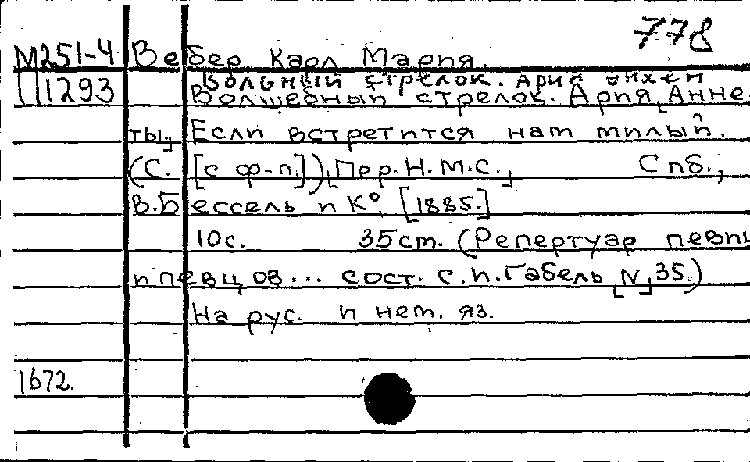 778
М251-4 Вебер Карл Мария.
Вольный стрелок. Ария Анхен
III1293 Волшебный стрелок. Ария [Анне
ты] Если встретится нам милый.
(С. [с ф-п.]) [Пер. Н.М.С.] Спб.,
В. Бессель и К° [1885.]
10с. 35ст. (Репертуар певиц
и певцов... сост. С.И. Габель [N] 35.)
На рус. и нем. яз.
1672.